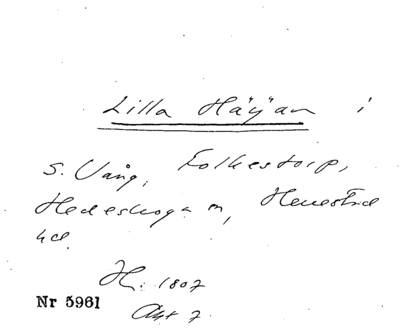 Lilla Häljan i
S. Vång, Folkestorp,
Hedeskoga sn, Herrestad
hd.
H: 1807
Akt 7
Nr 5961